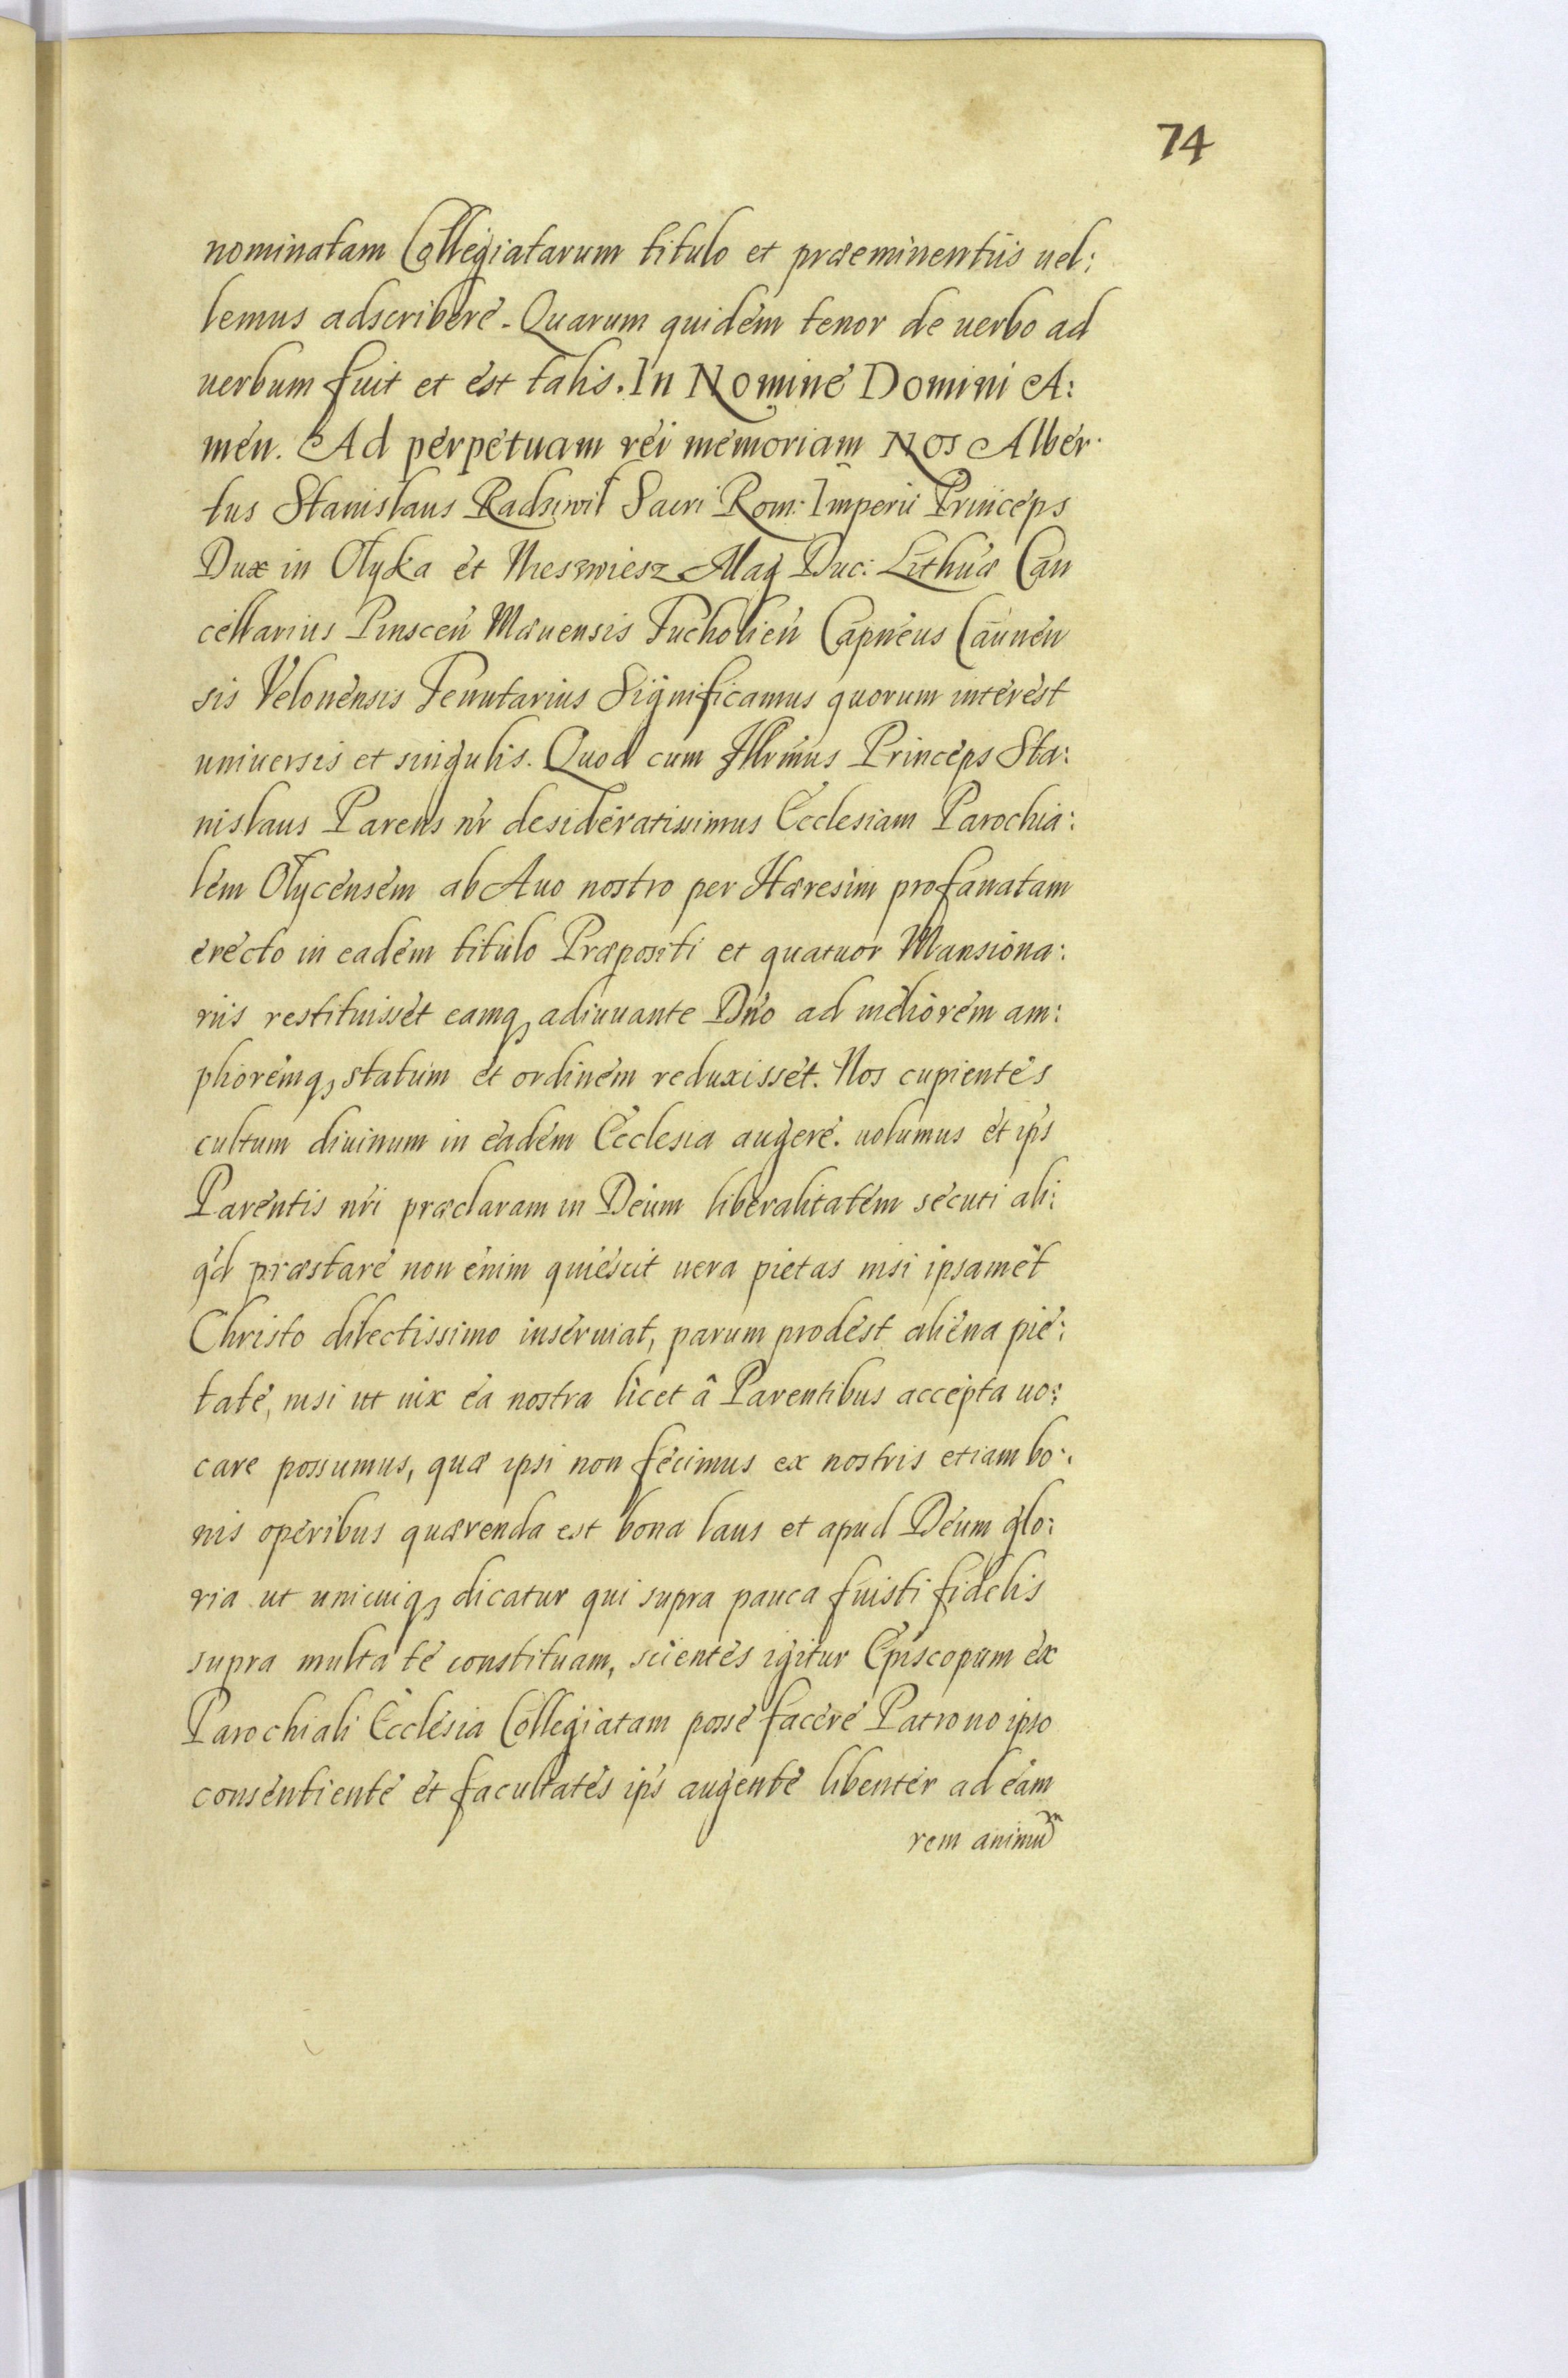 74
nominatam Collegiatarum titulo et præeminentiis uel:
lemus adscribere. Quarum quidem tenor de uerbo ad
uerbum fuit et est talis. In Nomine Domini A:
men. Ad perpetuam rei memoriam Nos Alber:
tus Stanislaus Radziwil Sacri Rom: Imperii Princeps
Dux in Olyka et Nieszwiesz Mag Duc: Lithuæ Can
cellarius Pinscen̄ Mæuensis Tucholien̄ Capneus Caunen
sis Velonensis Tenutarius Significamus quorum interest
uniuersis et singulis. Quod cum Illrm̄us Princeps Sta:
nislaus Parens nr̄ desideratissimus Ecclesiam Parochia:
lem Olycensem ab Auo nostro per Hæresim profanatam
erecto in eadem titulo Præpositi et quatuor Mansiona:
riis restituisset eamq, adiuuante Dn̄o ad meliorem am:
plioremq, statum et ordinem reduxisset. Nos cupientes
cultum diuinum in eadem Ecclesia augere. uolumus et ip̄s
Parentis nr̄i præclaram in Deum liberalitatem secuti ali:
qd̄ præstare non enim quiescit uera pietas nisi ipsamet
Christo dilectissimo inseruiat, parum prodest aliena pie:
tate, nisi ut uix ea nostra licet â Parentibus accepta uo:
care possumus, quæ ipsi non fecimus ex nostris etiam bo:
nis operibus quærenda est bona laus et apud Deum glo:
ria ut unicuiq, dicatur qui supra pauca fuisti fidelis
supra multa te constituam, scientes igitur Episcopum ex
Parochiali Ecclesia Collegiatam posse facere Patrono ipso
consentiente et facultates ip̄s augente libenter ad eam
rem animum